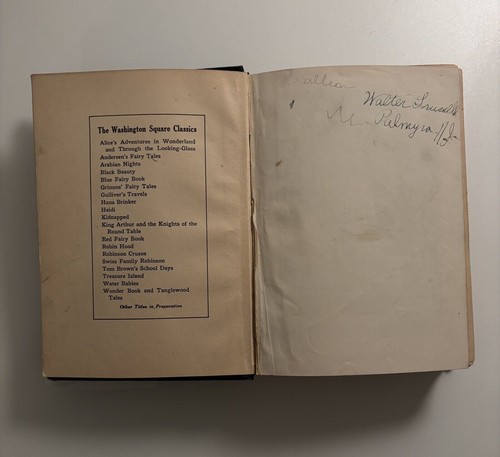 The Washington Square Classics
Alice's Adventures in Wonderland
and Through the Looking-Glass
Andersen's Fairy Tales
Arabian Nights
Black Beauty
Blue Fairy Book
Grimms' Fairy Tales
Gulliver's Travels
Hans Brinker
Heidi
Kidnapped
King Arthur and the Knights of the
Round Table
Red Fairy Book
Robin Hood
Robinson Crusoe
Swiss Family Robinson
Tom Brown's School Days
Treasure Island
Water Babies
Wonder Book and Tanglewood
Tales
Other Titles in Preparation
Walter
Palmyra